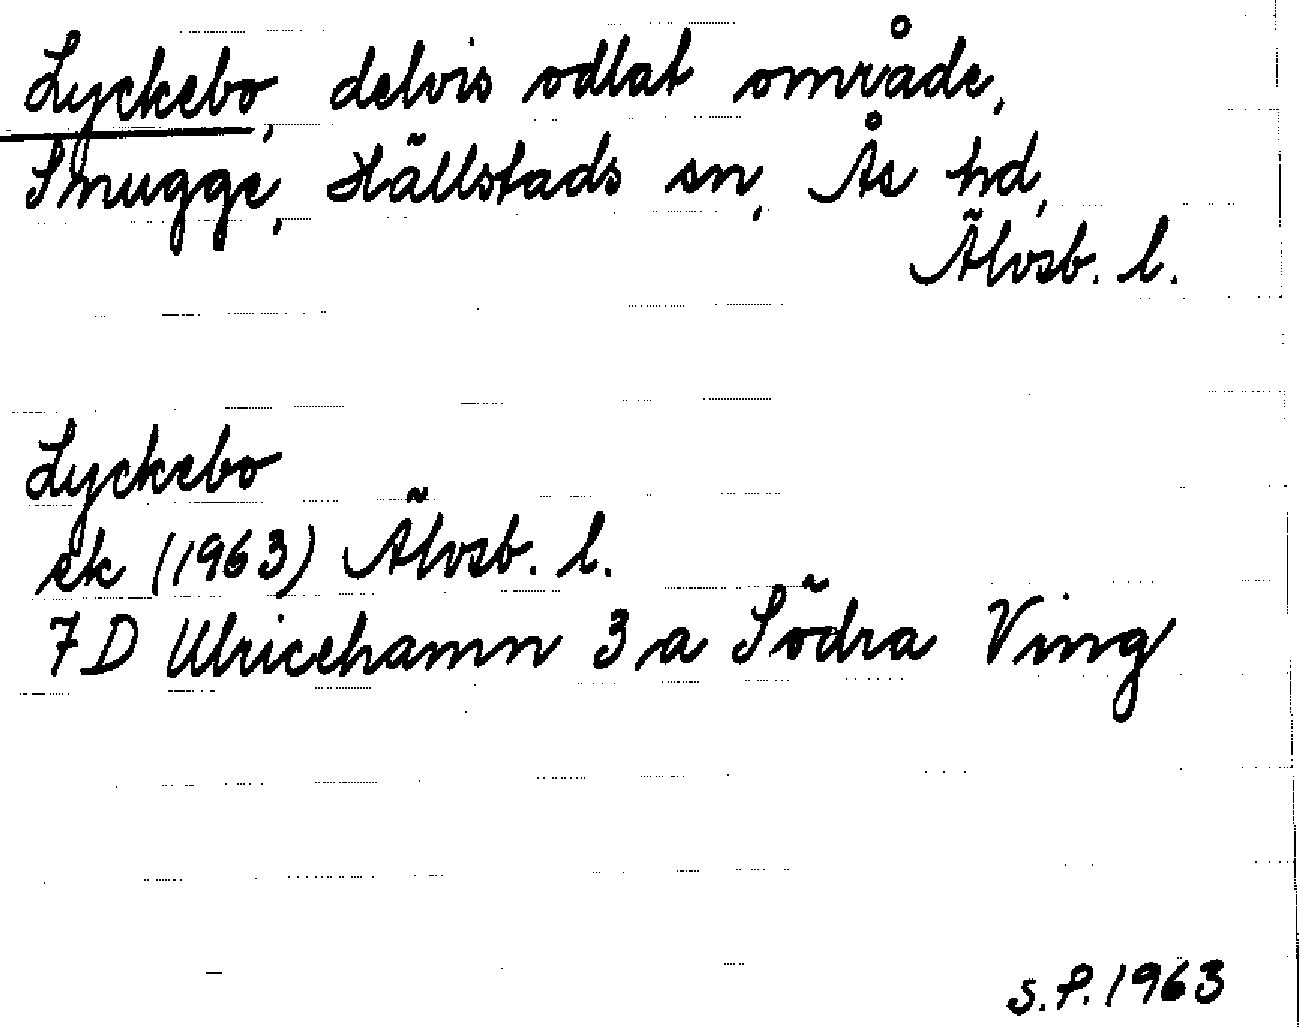 Lyckebo, delvis odlat område,
Smugge, Hällstads sn, Ås hd,
Älvsb. l.
Lyckebo
ek (1963) Älvsb. l.
7 D Ulricehamn 3 a Södra Ving
S.P. 1963